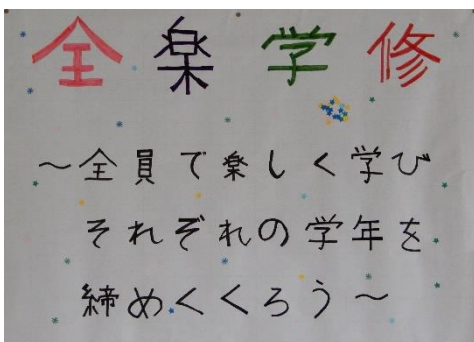 全楽学修
～全員で楽しく学び
それぞれの学年を
締めくくろう～